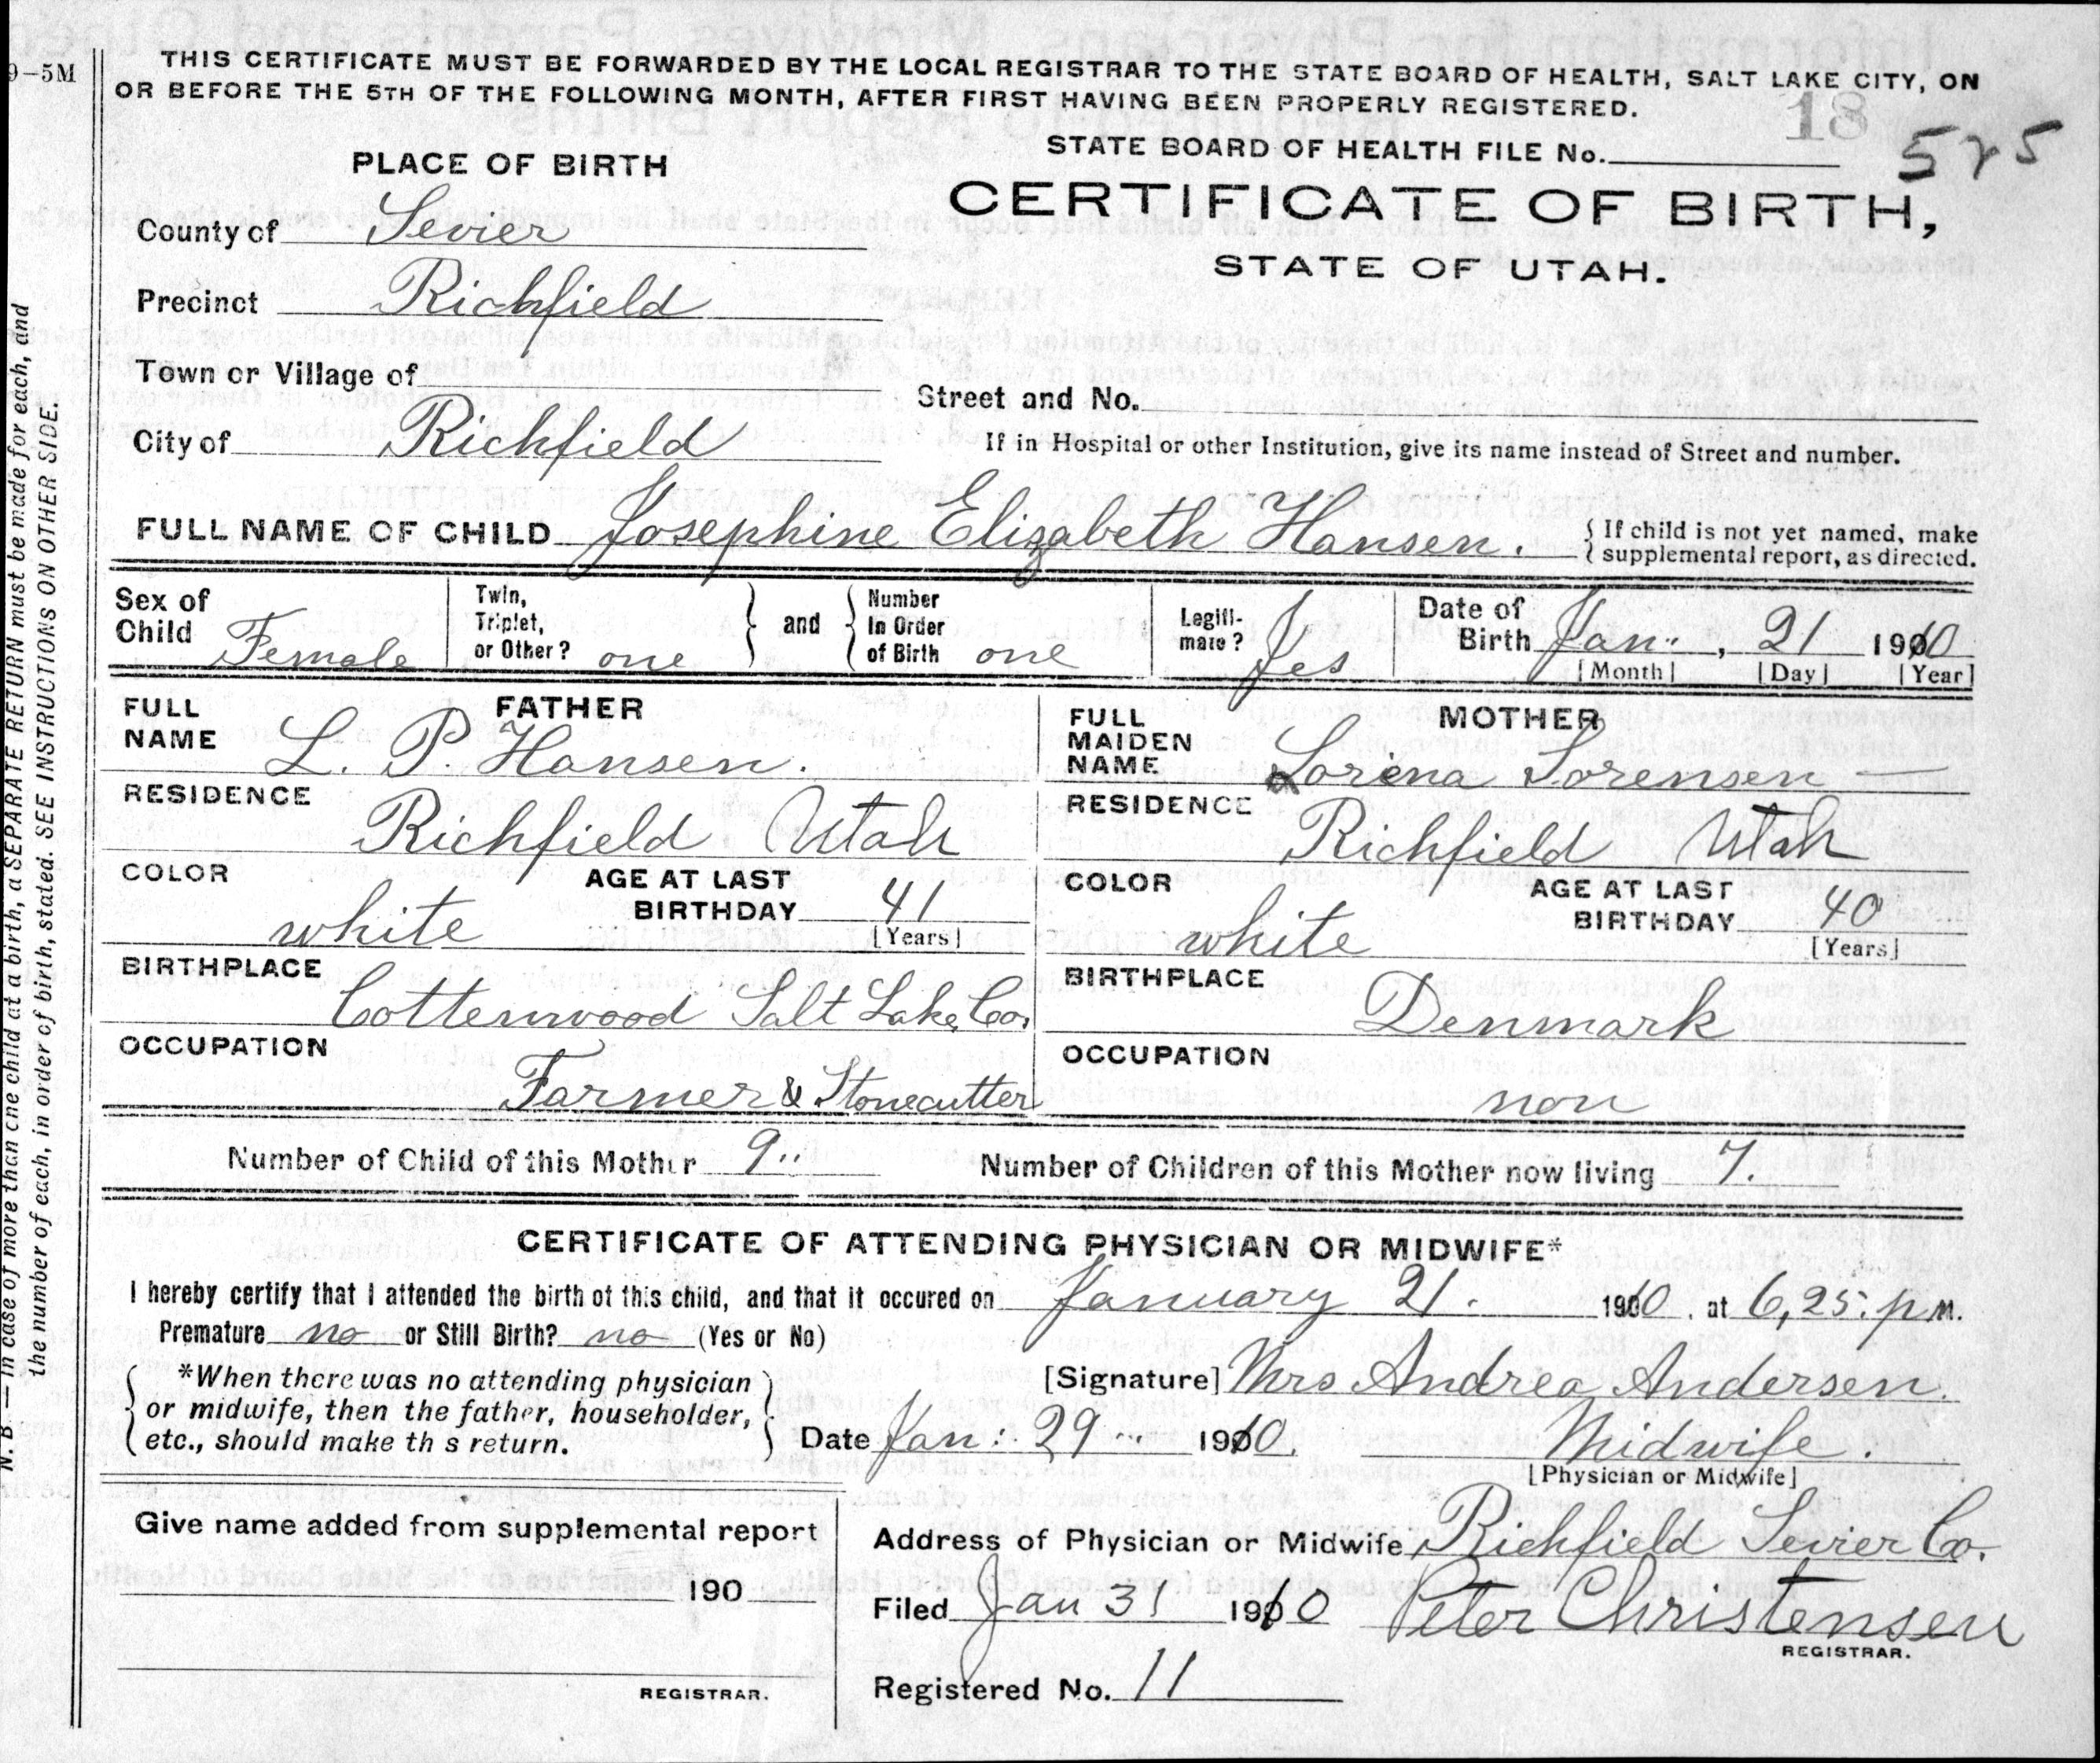 9-5M
THIS CERTIFICATE MUST BE FORWARDED BY THE LOCAL REGISTRAR TO THE STATE BOARD OF HEALTH, SALT LAKE CITY, ON
OR BEFORE THE 5TH OF THE FOLLOWING MONTH, AFTER FIRST HAVING BEEN PROPERLY REGISTERED.
18
STATE BOARD OF HEALTH FILE No.
525
PLACE OF BIRTH
CERTIFICATE OF BIRTH,
STATE OF UTAH.
County of Sevier
Precinct Richfield
Town or Village of
Street and No.
City of Richfield
If in Hospital or other Institution, give its name instead of Street and number.
FULL NAME OF CHILD Josephine Elizabeth Hansen.
{ If child is not yet named, make
{ supplemental report, as directed.
Sex of
Child Female
Twin,
Triplet,
or Other? one
and
Number
In Order
of Birth one
Legiti-
mate? Yes
Date of
Birth Jan., 21 1910
[Month] [Day] [Year]
FATHER
FULL
NAME L. P. Hansen.
MOTHER
FULL
MAIDEN
NAME Lorina Sorensen
RESIDENCE Richfield Utah
RESIDENCE Richfield Utah
COLOR white
AGE AT LAST
BIRTHDAY 41
[Years]
COLOR white
AGE AT LAST
BIRTHDAY 40
[Years]
BIRTHPLACE Cottenwood Salt Lake Co.
BIRTHPLACE Denmark
OCCUPATION Farmer & Stonecutter
OCCUPATION non
Number of Child of this Mother 9..
Number of Children of this Mother now living 7.
CERTIFICATE OF ATTENDING PHYSICIAN OR MIDWIFE*
I hereby certify that I attended the birth of this child, and that it occured on January 21. 1910. at 6,25. p M.
Premature no or Still Birth? no (Yes or No)
*When there was no attending physician
or midwife, then the father, householder,
etc., should make th s return.
[Signature] Mrs Andrea Andersen.
Date Jan: 29 1910.
Midwife.
[Physician or Midwife]
Give name added from supplemental report
190
REGISTRAR.
Address of Physician or Midwife Richfield Sevier Co.
Filed Jan 31 1910
Peter Christensen
REGISTRAR.
Registered No. 11
N. B.—In case of more than one child at a birth, a SEPARATE RETURN must be made for each, and
the number of each, in order of birth, stated. SEE INSTRUCTIONS ON OTHER SIDE.